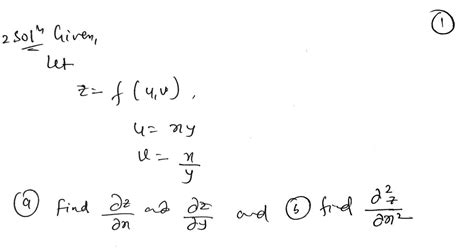 ①
2 Solⁿ Given,
Let
z = f(u,v),
u = xy
v = x/y
ⓐ Find ∂z/∂x and ∂z/∂y and ⓑ find ∂²z/∂x²